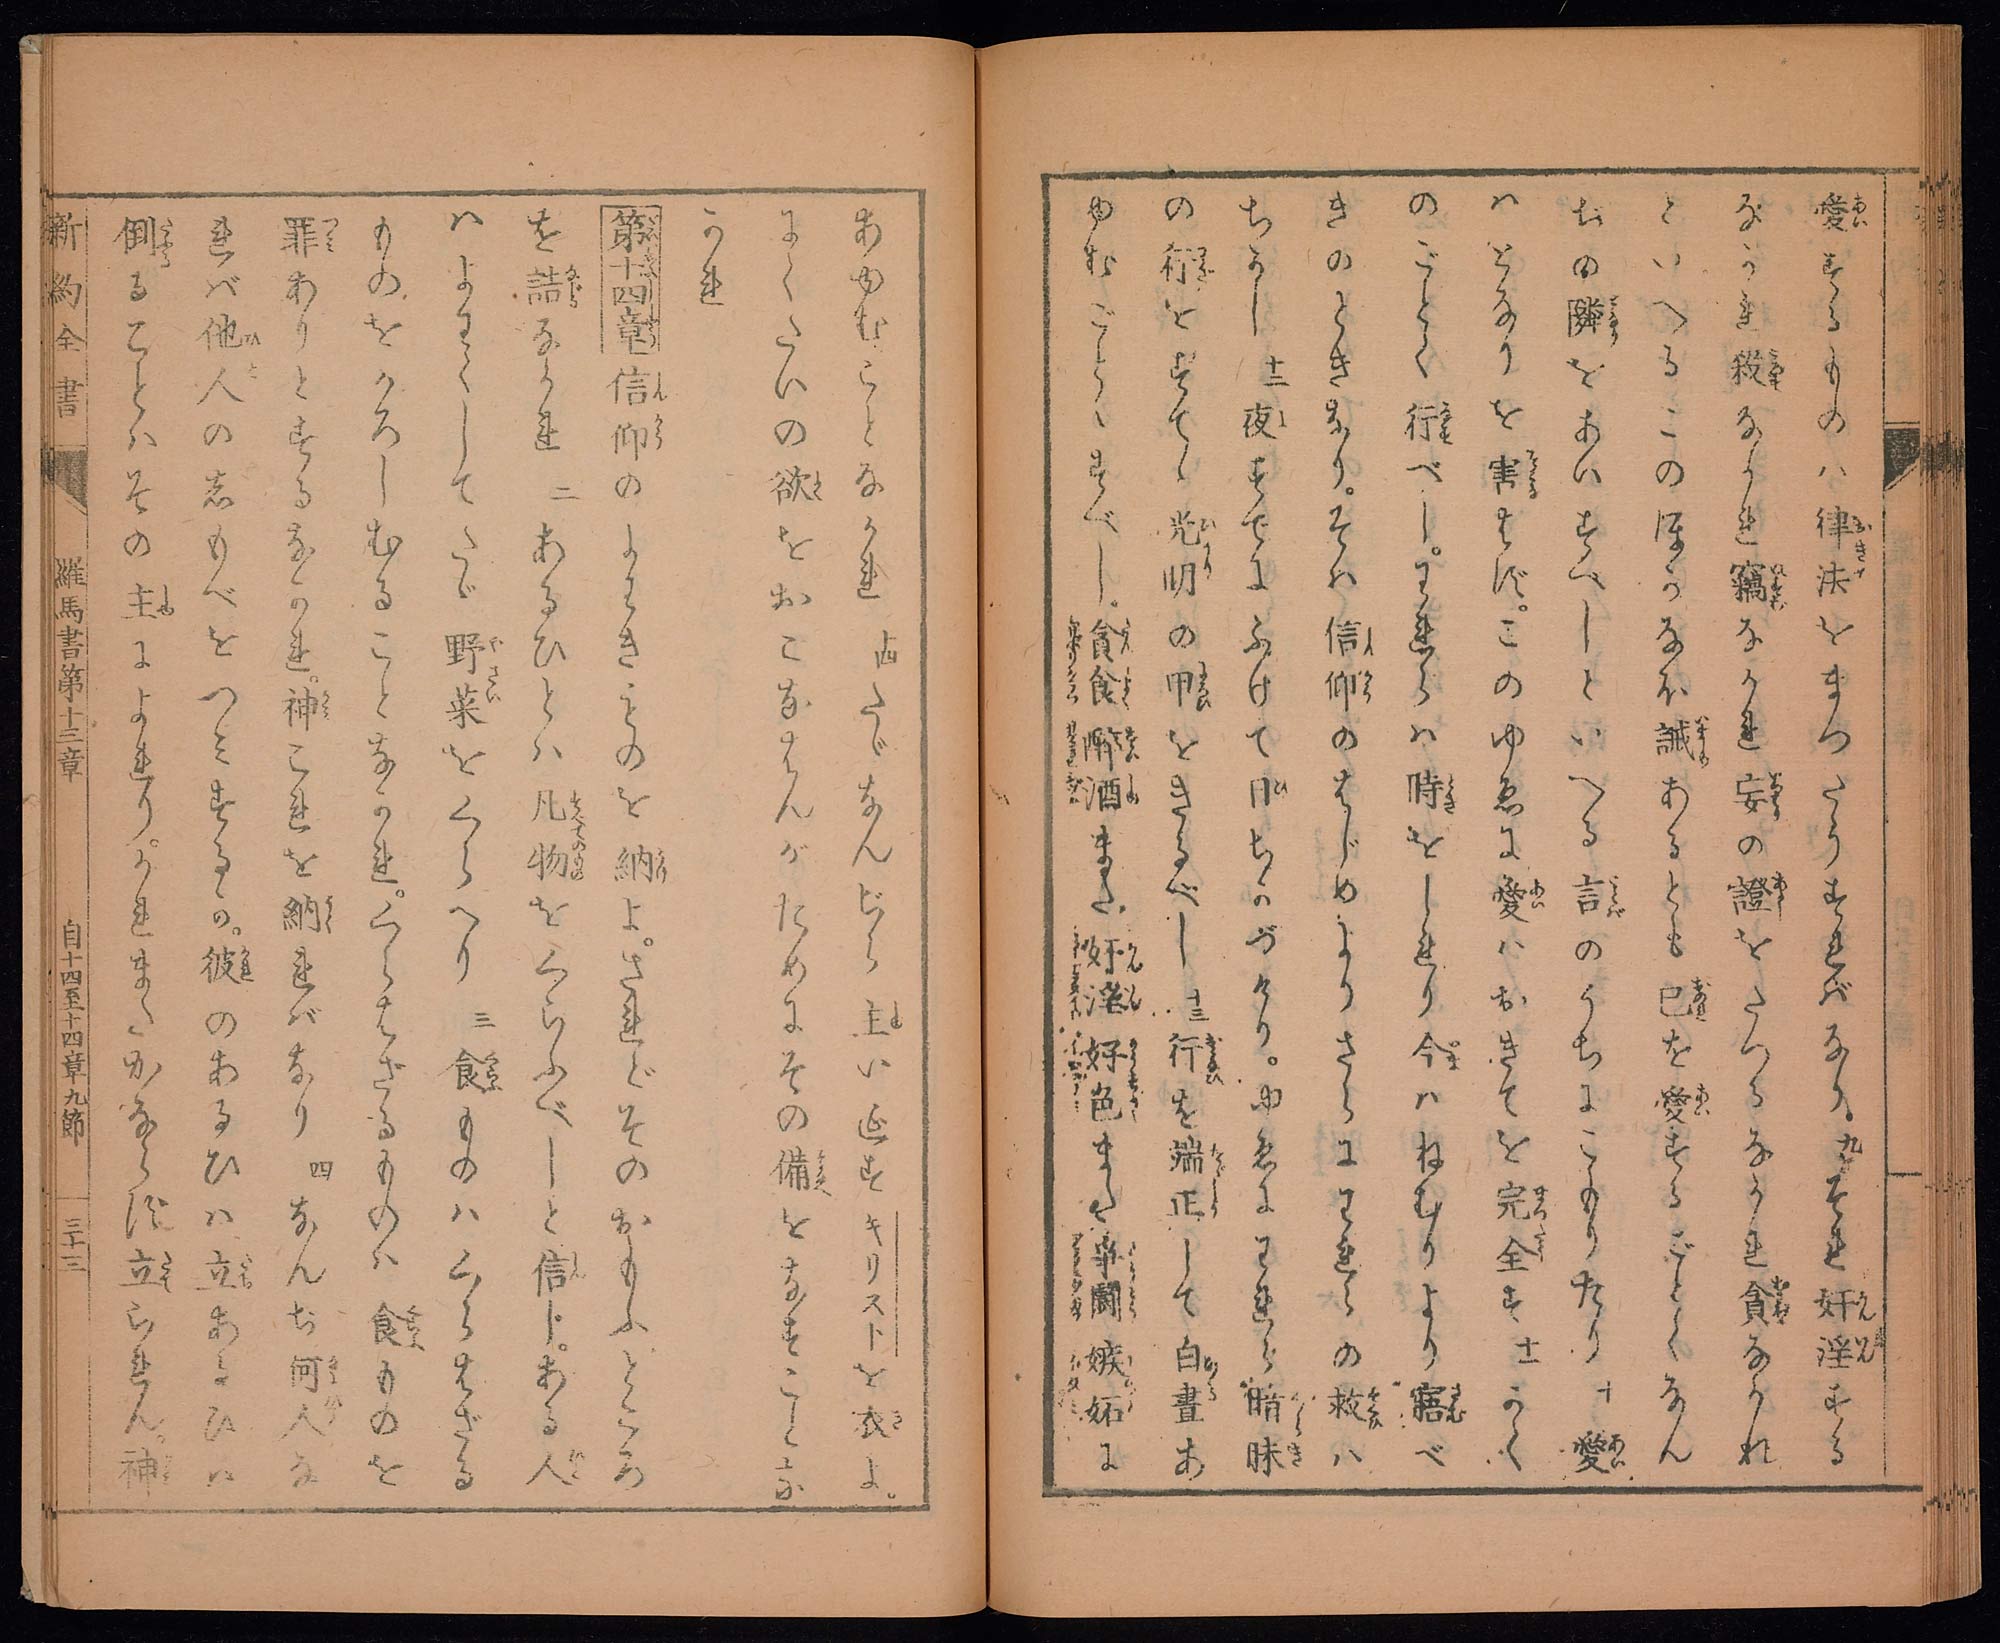 愛するものハ律法をまつたうすればなり。九それ奸淫する
なかれ殺なかれ竊なかれ妄の證をたつるなかれ貪なかれ
といへるこのほかなほ誡あるとも己を愛するごとくなん
ぢの隣をあいすべしといへる言のうちにこもりたり 十 愛
ハとなりを害はず。このゆゑに愛ハおきてを完全す 十一 かく
のごとく行べし。われらハ時をしれり今ハねむりより寤べ
きのときなり。そハ信仰のはじめよりさらにわれらの救ハ
ちかし 十二 夜すでにふけて日ちかづけり。ゆゑにわれら暗昧
の行をすてゝ光明の甲をきるべし 十三 行を端正して白晝あ
ゆむごとくすべし。貪食醉酒また奸淫好色また爭鬪嫉妬に
あゆむことなかれ 十四 たゞなんぢら主いゑすキリストを衣よ。
にくたいの欲をおこなはんがためにその備をなすことな
かれ
第十四章 信仰のよわきものを納よ。されどそのおもふところ
を詰なかれ 二 あるひとハ凡物をくらふべしと信ず。ある人
ハよわくしてたゞ野菜をくらへり 三 食ものハくらはざる
ものをかろしむることなかれ。くらはざるものハ食ものを
罪ありとするなかれ。神これを納ればなり 四 なんぢ何人な
れバ他人の志もべをつみするか。彼のあるひハ立あるひハ
倒ることハその主によれり。かれまたかならず立られん。神
新約全書 羅馬書第十三章 自十四至十四章九節 三十三